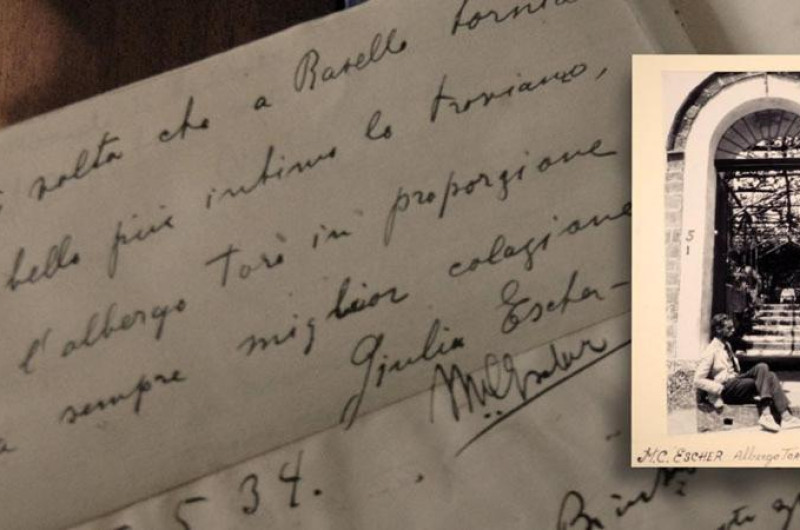 volta che a Ravello tornia
bello più intimo lo troviamo,
l'albergo Toro in proporzione
sempre miglior colazione
Giulia Escher-
MCEscher
5 34.
5
1
M.C. ESCHER Albergo Tor